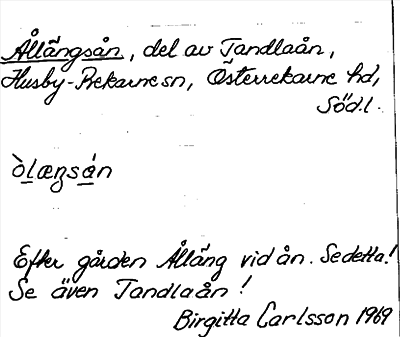 Ållängsån, del av Tandlaån,
Husby-Rekarne sn, Österrekarne hd,
Söd.l.
òlæŋsán
Efter gården Ålläng vid ån. Se detta!
Se även Tandlaån!
Birgitta Carlsson 1969